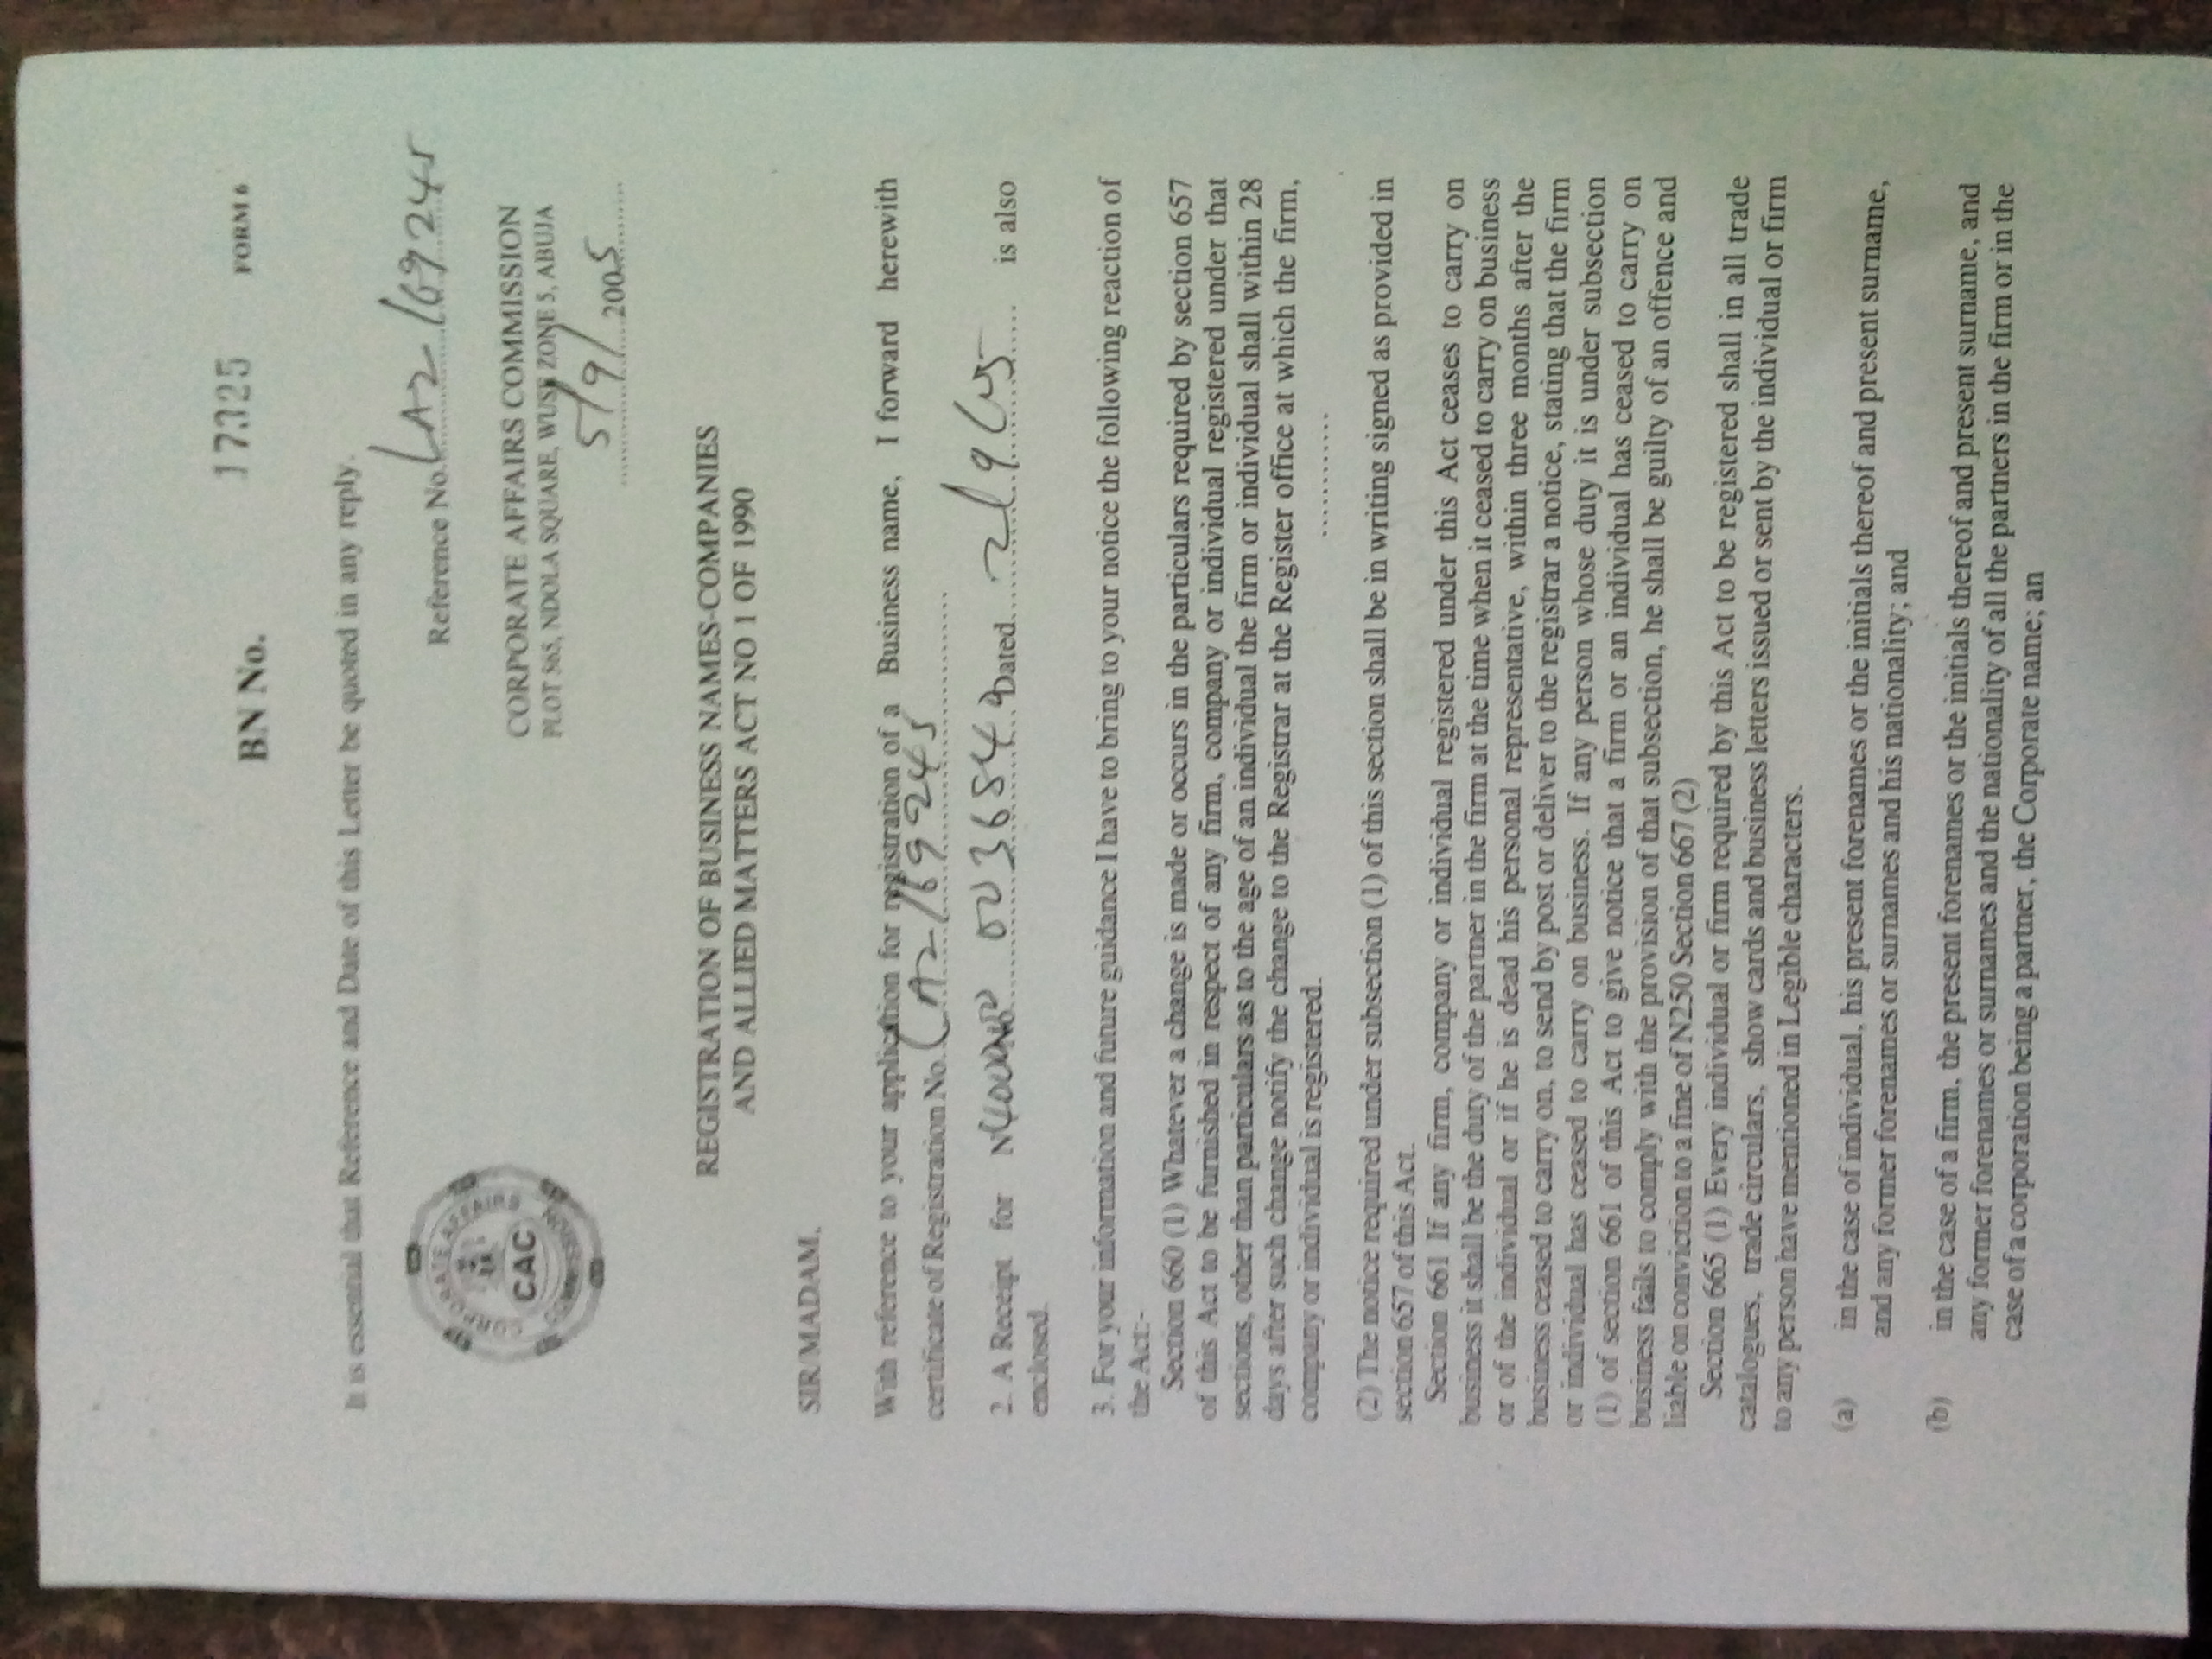 BN No. 17325 FORM 6
It is essential that Reference and Date of this Letter be quoted in any reply.
Reference No. LAZ/169245
CORPORATE AFFAIRS
CAC
COMMISSION
CORPORATE AFFAIRS COMMISSION
PLOT 565, NDOLA SQUARE, WUSE ZONE 5, ABUJA
5/9/2005
REGISTRATION OF BUSINESS NAMES-COMPANIES
AND ALLIED MATTERS ACT NO 1 OF 1990
SIR/MADAM,
With reference to your application for registration of a Business name, I forward herewith
certificate of Registration No. LAZ/169245
2. A Receipt for Dated 2/9/05 is also
enclosed.
3. For your information and future guidance I have to bring to your notice the following reaction of
the Act:-
Section 660 (1) Whatever a change is made or occurs in the particulars required by section 657
of this Act to be furnished in respect of any firm, company or individual registered under that
sections, other than particulars as to the age of an individual the firm or individual shall within 28
days after such change notify the change to the Registrar at the Register office at which the firm,
company or individual is registered. ............
(2) The notice required under subsection (1) of this section shall be in writing signed as provided in
section 657 of this Act.
Section 661 If any firm, company or individual registered under this Act ceases to carry on
business it shall be the duty of the partner in the firm at the time when it ceased to carry on business
or of the individual or if he is dead his personal representative, within three months after the
business ceased to carry on, to send by post or deliver to the registrar a notice, stating that the firm
or individual has ceased to carry on business. If any person whose duty it is under subsection
(1) of section 661 of this Act to give notice that a firm or an individual has ceased to carry on
business fails to comply with the provision of that subsection, he shall be guilty of an offence and
liable on conviction to a fine of N250 Section 667 (2)
Section 665 (1) Every individual or firm required by this Act to be registered shall in all trade
catalogues, trade circulars, show cards and business letters issued or sent by the individual or firm
to any person have mentioned in Legible characters.
(a) in the case of individual, his present forenames or the initials thereof and present surname,
and any former forenames or surnames and his nationality; and
(b) in the case of a firm, the present forenames or the initials thereof and present surname, and
any former forenames or surnames and the nationality of all the partners in the firm or in the
case of a corporation being a partner, the Corporate name; an